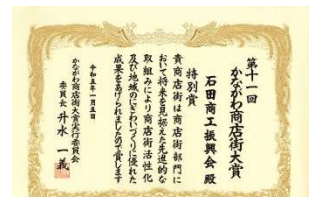 第十一回
かながわ商店街大賞
石田商工振興会 殿
特別賞
貴商店街は商店街部門に
おいて将来を見据えた先進的な
取組みにより商店街活性化
及び地域のにぎわいづくりに優れた
成果をあげられましたので賞します
令和五年一月五日
かながわ商店街大賞実行委員会
委員長 升水 一義